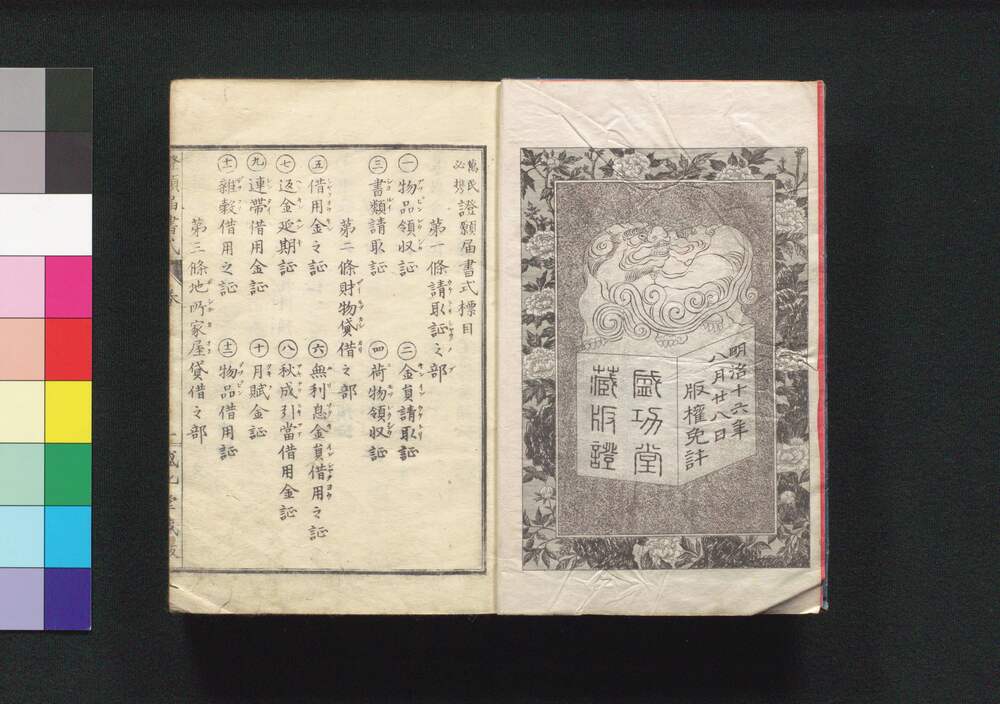 明治十六年
八月廿八日
版權免許
盛功堂
藏版證
萬民必携證願届書式標目
第一條請取証之部
一 物品領収証
二 金員請取証
三 書類請取証
四 荷物領収証
第二條財物貸借之部
五 借用金之証
六 無利息金員借用之証
七 返金延期証
八 秋成引當借用金証
九 連帶借用金証
十 月賦金証
十一 雜穀借用之証
十二 物品借用証
第三條地所家屋貸借之部